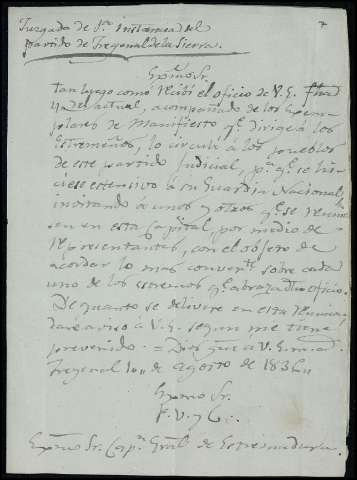 Juzgado de 1ª instancia del
Partido de Fregenal de la Sierra.
Exmo Sr.
Tan luego como recibí el oficio de V.E. fhad
del actual, acompañado de los exem-
plares de Manifiesto qe dirige á los
Estremeños, lo circulé á los pueblos
de este partido Judicial pa qe se hi-
ciese estensivo á su Guardia Nacional,
invitando á unos y otros qe se reunie-
sen en esta Capital, por medio de
representantes, con el objeto de
acordar lo mas convente sobre cada
uno de los estremos qe abraza dho oficio.
De quanto se delivere en esta reunion
daré aviso á V.E. segun me tiene
prevenido. = Dios gue á V.E. m. ad.
Fregenal 10 de Agosto de 1836
Exmo Sr.
F. V. y G.
Exmo Sr. Capn Genl de Estremadura.